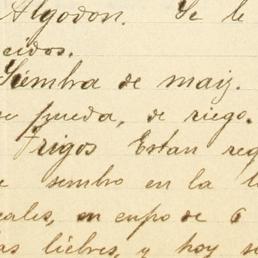 Algodon. Se le
cidos.
Siembra de maiz.
se pueda, de riego.
Trigos Estan reg
e sembro en la l
eales, en cupo de 6
as liebres, y hoy se